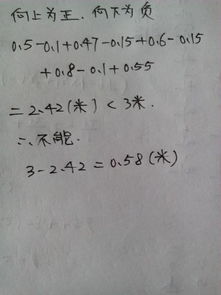 向上为正．向下为负
0.5-0.1+0.47-0.15+0.6-0.15
+0.8-0.1+0.55
=2.42(米)<3米．
∴不能．
3-2.42=0.58(米)